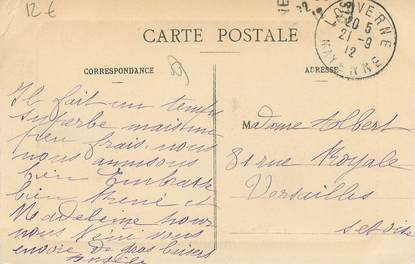 12 €
CARTE POSTALE
CORRESPONDANCE
ADRESSE
VERNE
20 5
21-9
12
MAYENNE
Il fait un temps
superbe mais un
peu frais, nous
nous amusons
bien Embrasse
bien René et
Madeleine pour
nous Néné vous
envoie de gros bisous
Madame Albert
81 rue Royale
Versailles
S et Oise